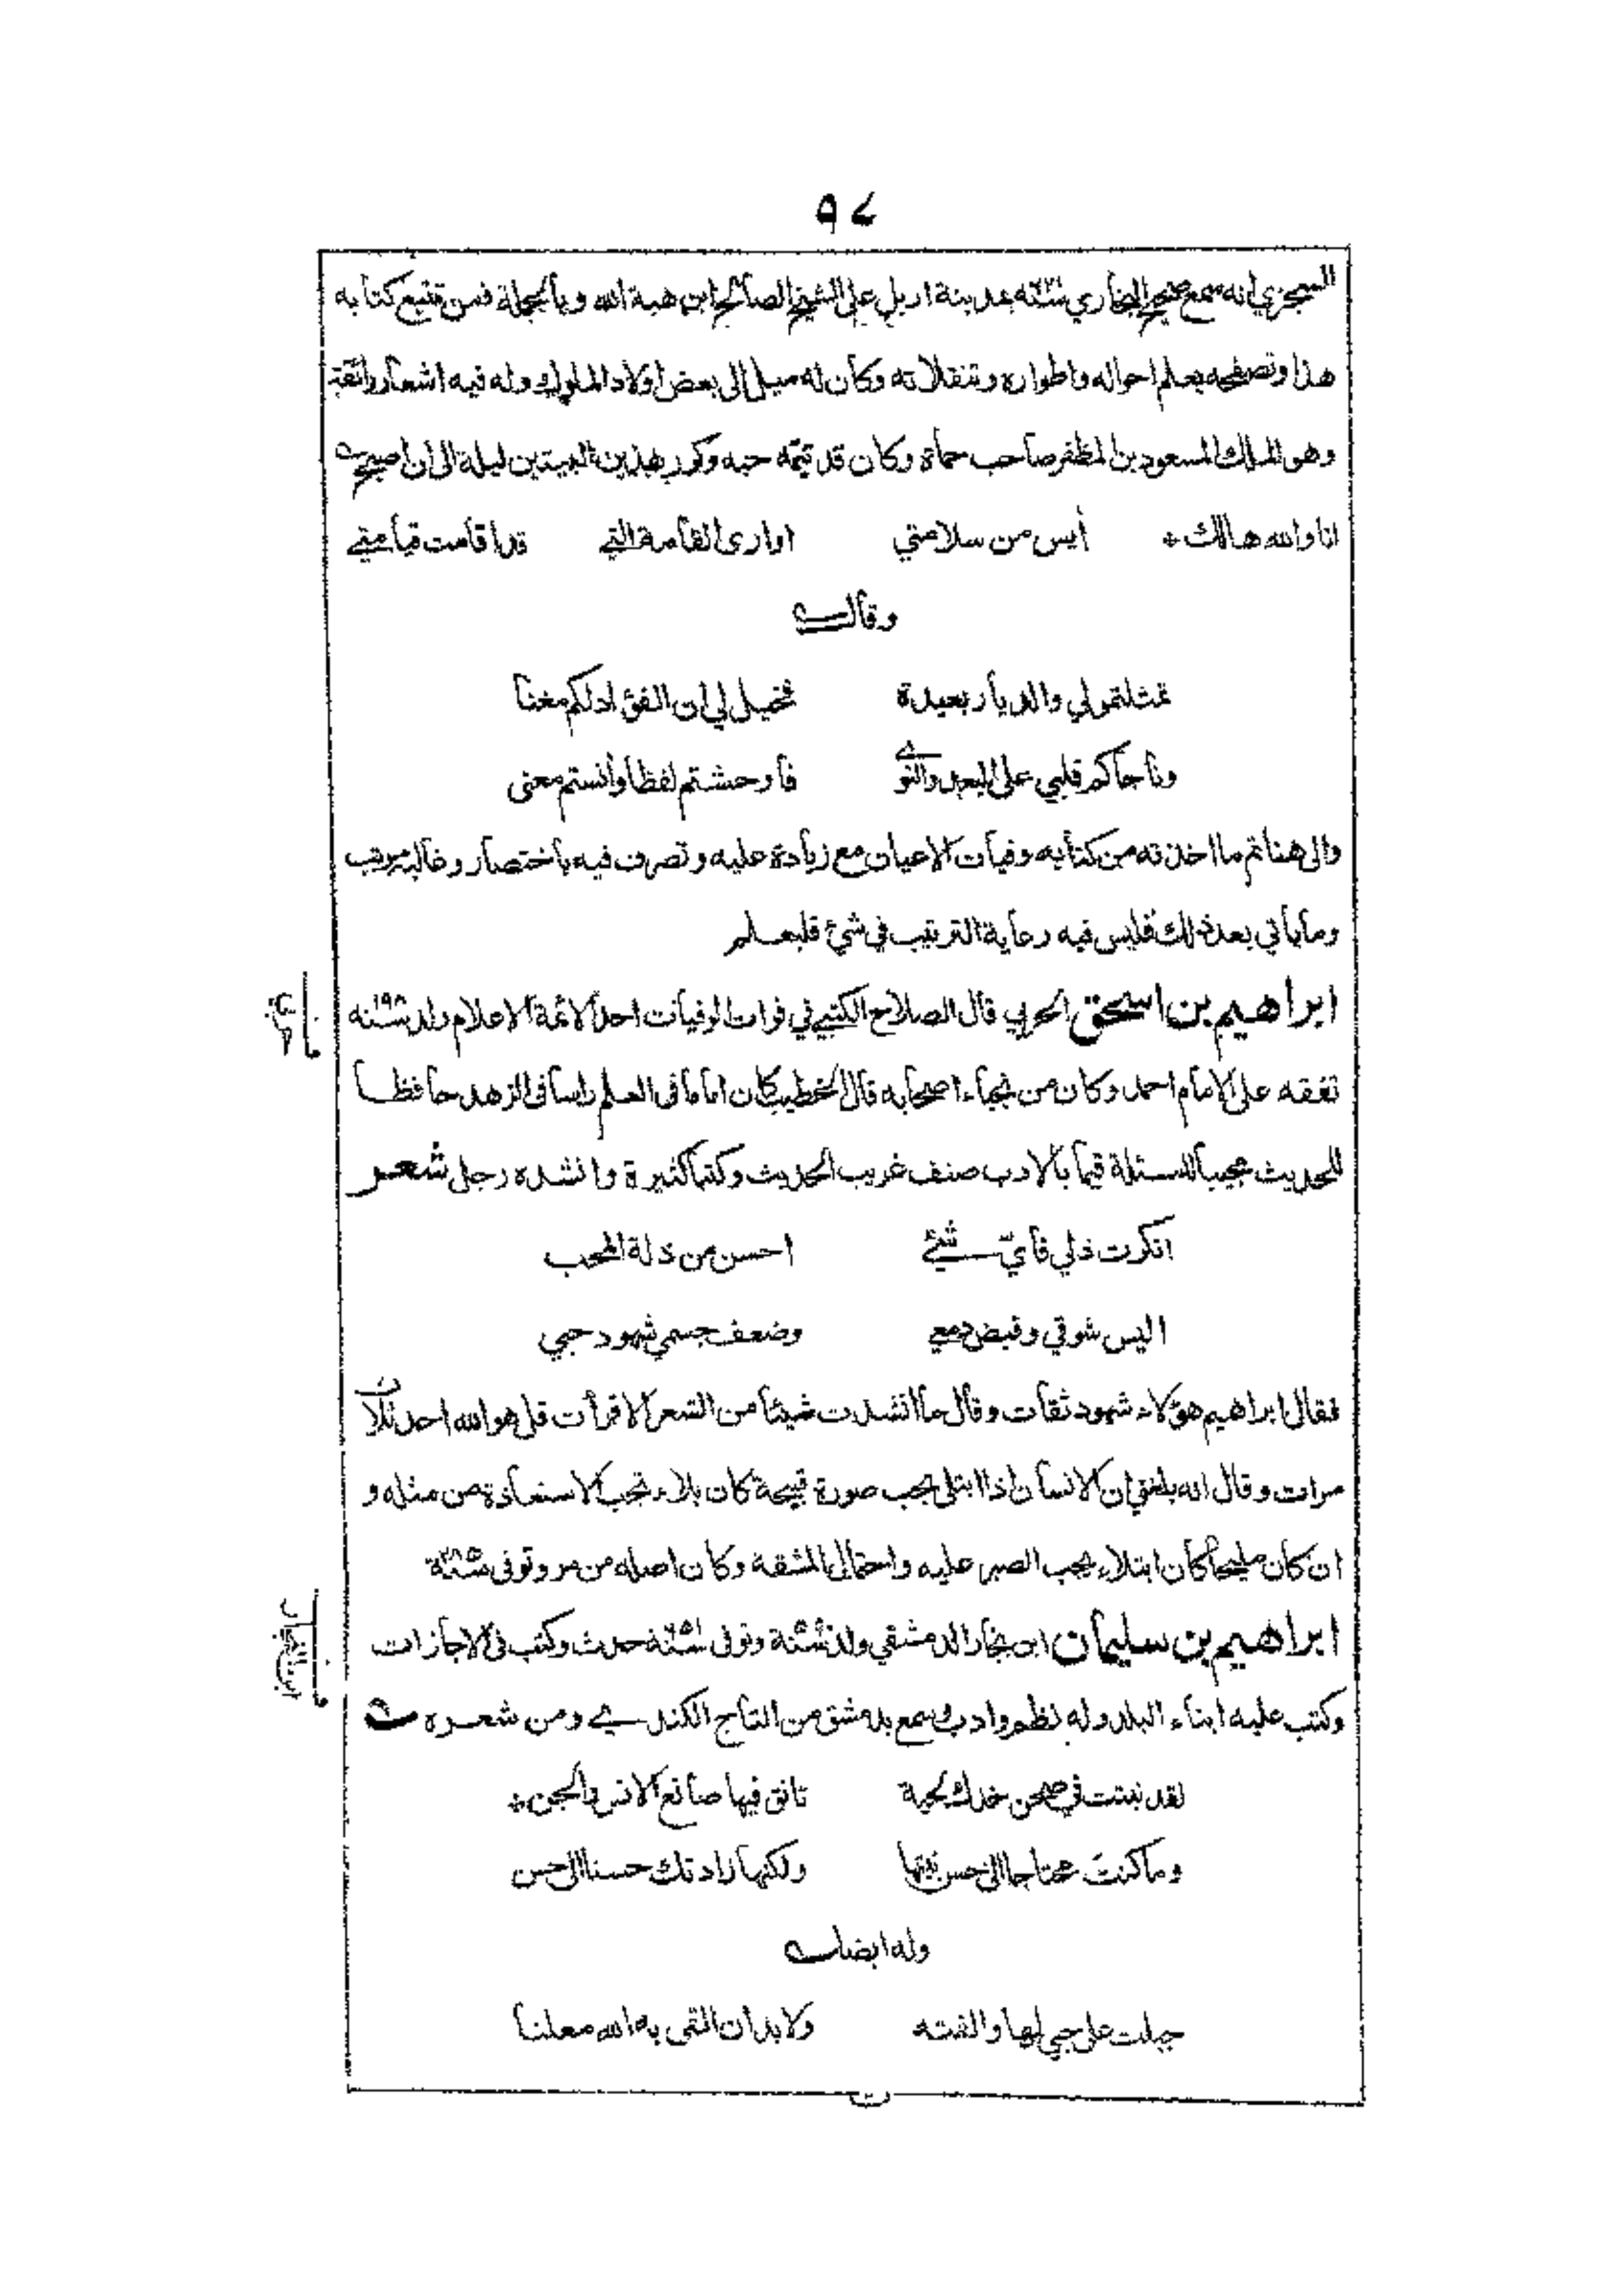 ٩٧
السجزي انه سمع صحيح البخاري بمدينة اربل على الشيخ الصالح ابن هبة الله وبالجملة فمن تتبع كتابه
هذا وتصفحه يعلم احواله واطواره وتنقلاته وكان له ميل الى بعض اولاد الملوك وله فيه اشعار رائقة
وهو الملك المسعود بن المظفر صاحب حماة وكان قد تيمّه حبه وكرر هذين البيتين ليلة الى ان اصبح
انا والله هالك * أيس من سلامتي اوارى القامة التي قد اقامت قيامتي
وقال
تمثلتمو لي والديار بعيدة فخيل لي ان الفؤاد لكم مغنا
وناجاكم قلبي على البعد والنوى فاوحشتم لفظا وانستم معنى
والى هنا تم ما اخذته من كتابه وفيات الاعيان مع زيادة عليه وتصرف فيه باختصار وغالبه مرتب
وما ياتي بعد ذلك فليس فيه رعاية الترتيب في شيئ فليعلم
ابراهيم بن اسحق الحربي قال الصلاح الكتبي في فوات الوفيات احد الائمة الاعلام ولد سنه ١٩٨
تفقه على الامام احمد وكان من نجباء اصحابه قال الخطيب كان اماما في العلم راسا في الزهد حافظا
للحديث مجيبا للمسئلة قيما بالادب صنف غريب الحديث وكتبا كثيرة وانشده رجل شعر
انكرت ذلي فايّ شيئ احسن من ذلة المحب
اليس شوقي وفيض دمعي وضعف جسمي شهود حبي
فقال ابراهيم هؤلاء شهود ثقات وقال ما انشدت شيئا من الشعر الا قرأت قل هو الله احد ثلاث
مرات وقال انه بلغني ان الانسان اذا ابتلى بحب صورة قبيحة كان بلاء تجب الاستعاذة من مثله و
ان كان مليحا كان ابتلاء يجب الصبر عليه واحتمال المشقة وكان اصله من مرو توفى سنة ٢٨٥
ابراهيم بن سليمان ابن نجار الدمشقي ولد وتوفى حدث وكتب في الاجازات
وكتب عليه ابناء البلد وله نظم وادب وسمع بدمشق من التاج الكندي ومن شعره
لقد نبتت في صحن خدك لحية تانق فيها صانع الانس والجن *
وما كنت محتاجا الى حسن نبتها ولكنها زادتك حسنا الى حسن
وله ايضا
جبلت على حبي لها والفته ولا بد ان القى به الله معلنا
ابن النجار